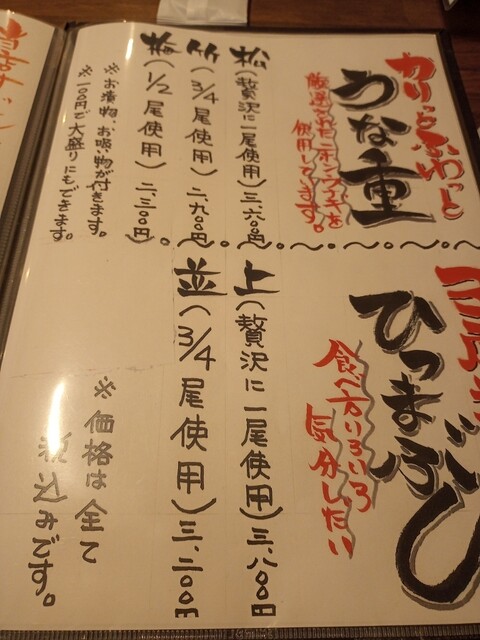 カリッとふわっと
うな重
厳選されたニホンウナギを
使用してます。
松(贅沢に一尾使用)三、六〇〇円
竹(3/4尾使用)二、九〇〇円
梅(1/2尾使用)二、三〇〇円
※お漬物、お吸い物が付きます。
※一〇〇円で大盛りにもできます。
ひつまぶし
食べ方いろいろ
気分しだい
上(贅沢に一尾使用)三、八〇〇円
並(3/4尾使用)三、二〇〇円
※価格は全て
税込みです。